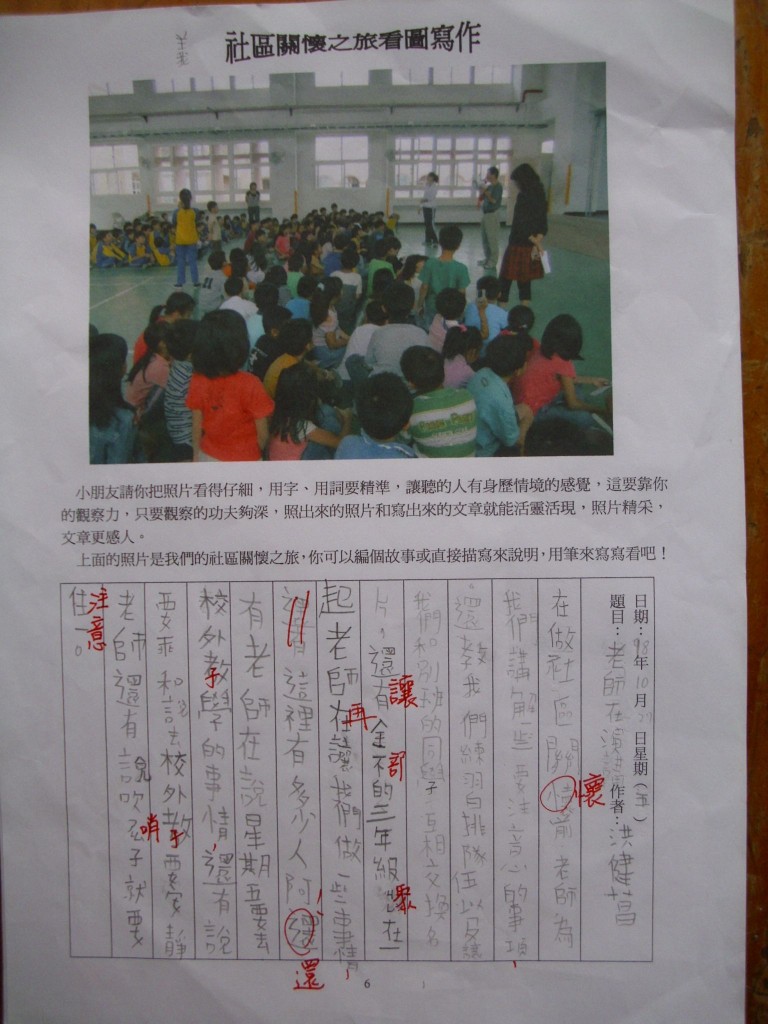 社區關懷之旅看圖寫作
小朋友請你把照片看得仔細，用字、用詞要精準，讓聽的人有身歷情境的感覺，這要靠你
的觀察力，只要觀察的功夫夠深，照出來的照片和寫出來的文章就能活靈活現，照片精采，
文章更感人。
上面的照片是我們的社區關懷之旅，你可以編個故事或直接描寫來說明，用筆來寫寫看吧！
日期：98年10月 日星期（五）
題目：老師在演講 作者：洪健菖
在做社區關 前老師為
懷
我們講解一些要注意的事項，
還教我們練習排隊伍以及讓
我們和別班的同學子互相交換名
片，還有全 的三年級 在一
讓 部 聚
起老師在讓我們做一些事情，
再
還有這裡有多少人阿！還
還
有老師在說星期五要去
校外教學的事情，還有說
要乖和說去校外教要安靜
老師還有說吹 子就要
哨
注意
住。
6